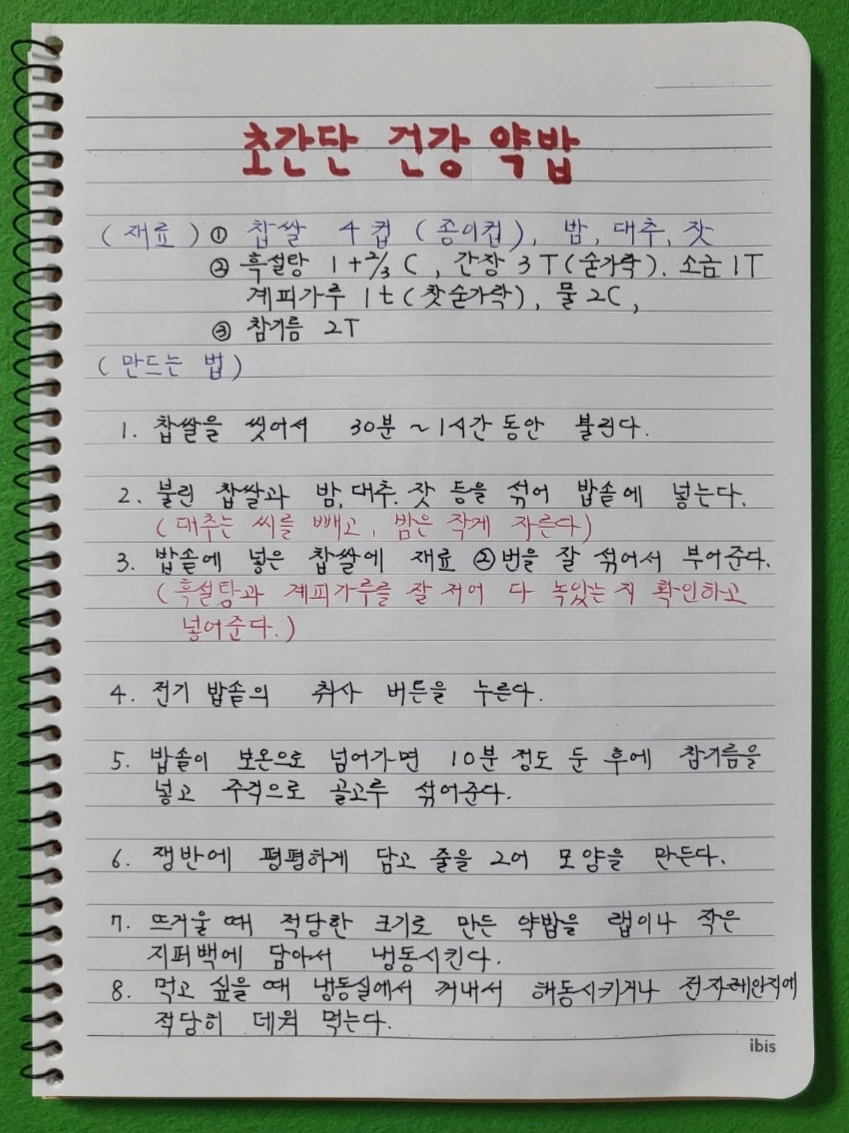 초간단 건강 약밥
(재료) ① 찹쌀 4컵 (종이컵), 밤, 대추, 잣
② 흑설탕 1+2/3 C, 간장 3T(숟가락). 소금 1T
계피가루 1t (찻숟가락), 물 2C,
③ 참기름 2T
(만드는 법)
1. 찹쌀을 씻어서 30분~1시간 동안 불린다.
2. 불린 찹쌀과 밤, 대추. 잣 등을 섞어 밥솥에 넣는다.
(대추는 씨를 빼고, 밤은 작게 자른다)
3. 밥솥에 넣은 찹쌀에 재료 ②번을 잘 섞어서 부어준다.
(흑설탕과 계피가루를 잘 저어 다 녹았는지 확인하고
넣어준다.)
4. 전기 밥솥의 취사 버튼을 누른다.
5. 밥솥이 보온으로 넘어가면 10분 정도 둔 후에 참기름을
넣고 주걱으로 골고루 섞어준다.
6. 쟁반에 평평하게 담고 줄을 그어 모양을 만든다.
7. 뜨거울 때 적당한 크기로 만든 약밥을 랩이나 작은
지퍼백에 담아서 냉동시킨다.
8. 먹고 싶을 때 냉동실에서 꺼내서 해동시키거나 전자레인지에
적당히 데워 먹는다.
ibis